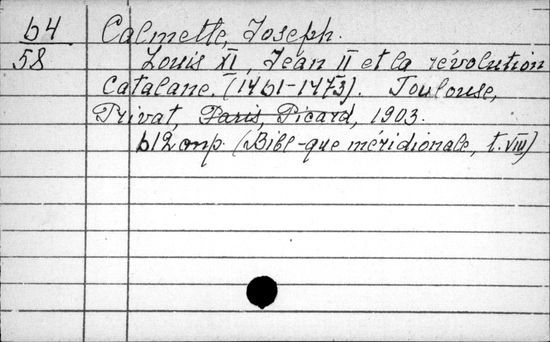 64 Calmette, Joseph.
58 Louis XI, Jean II et la révolution
Catalane. (1461-1473). Toulouse,
Privat, Paris, Picard, 1903.
612 стр. (Bibl-que méridionale, t. VIII)